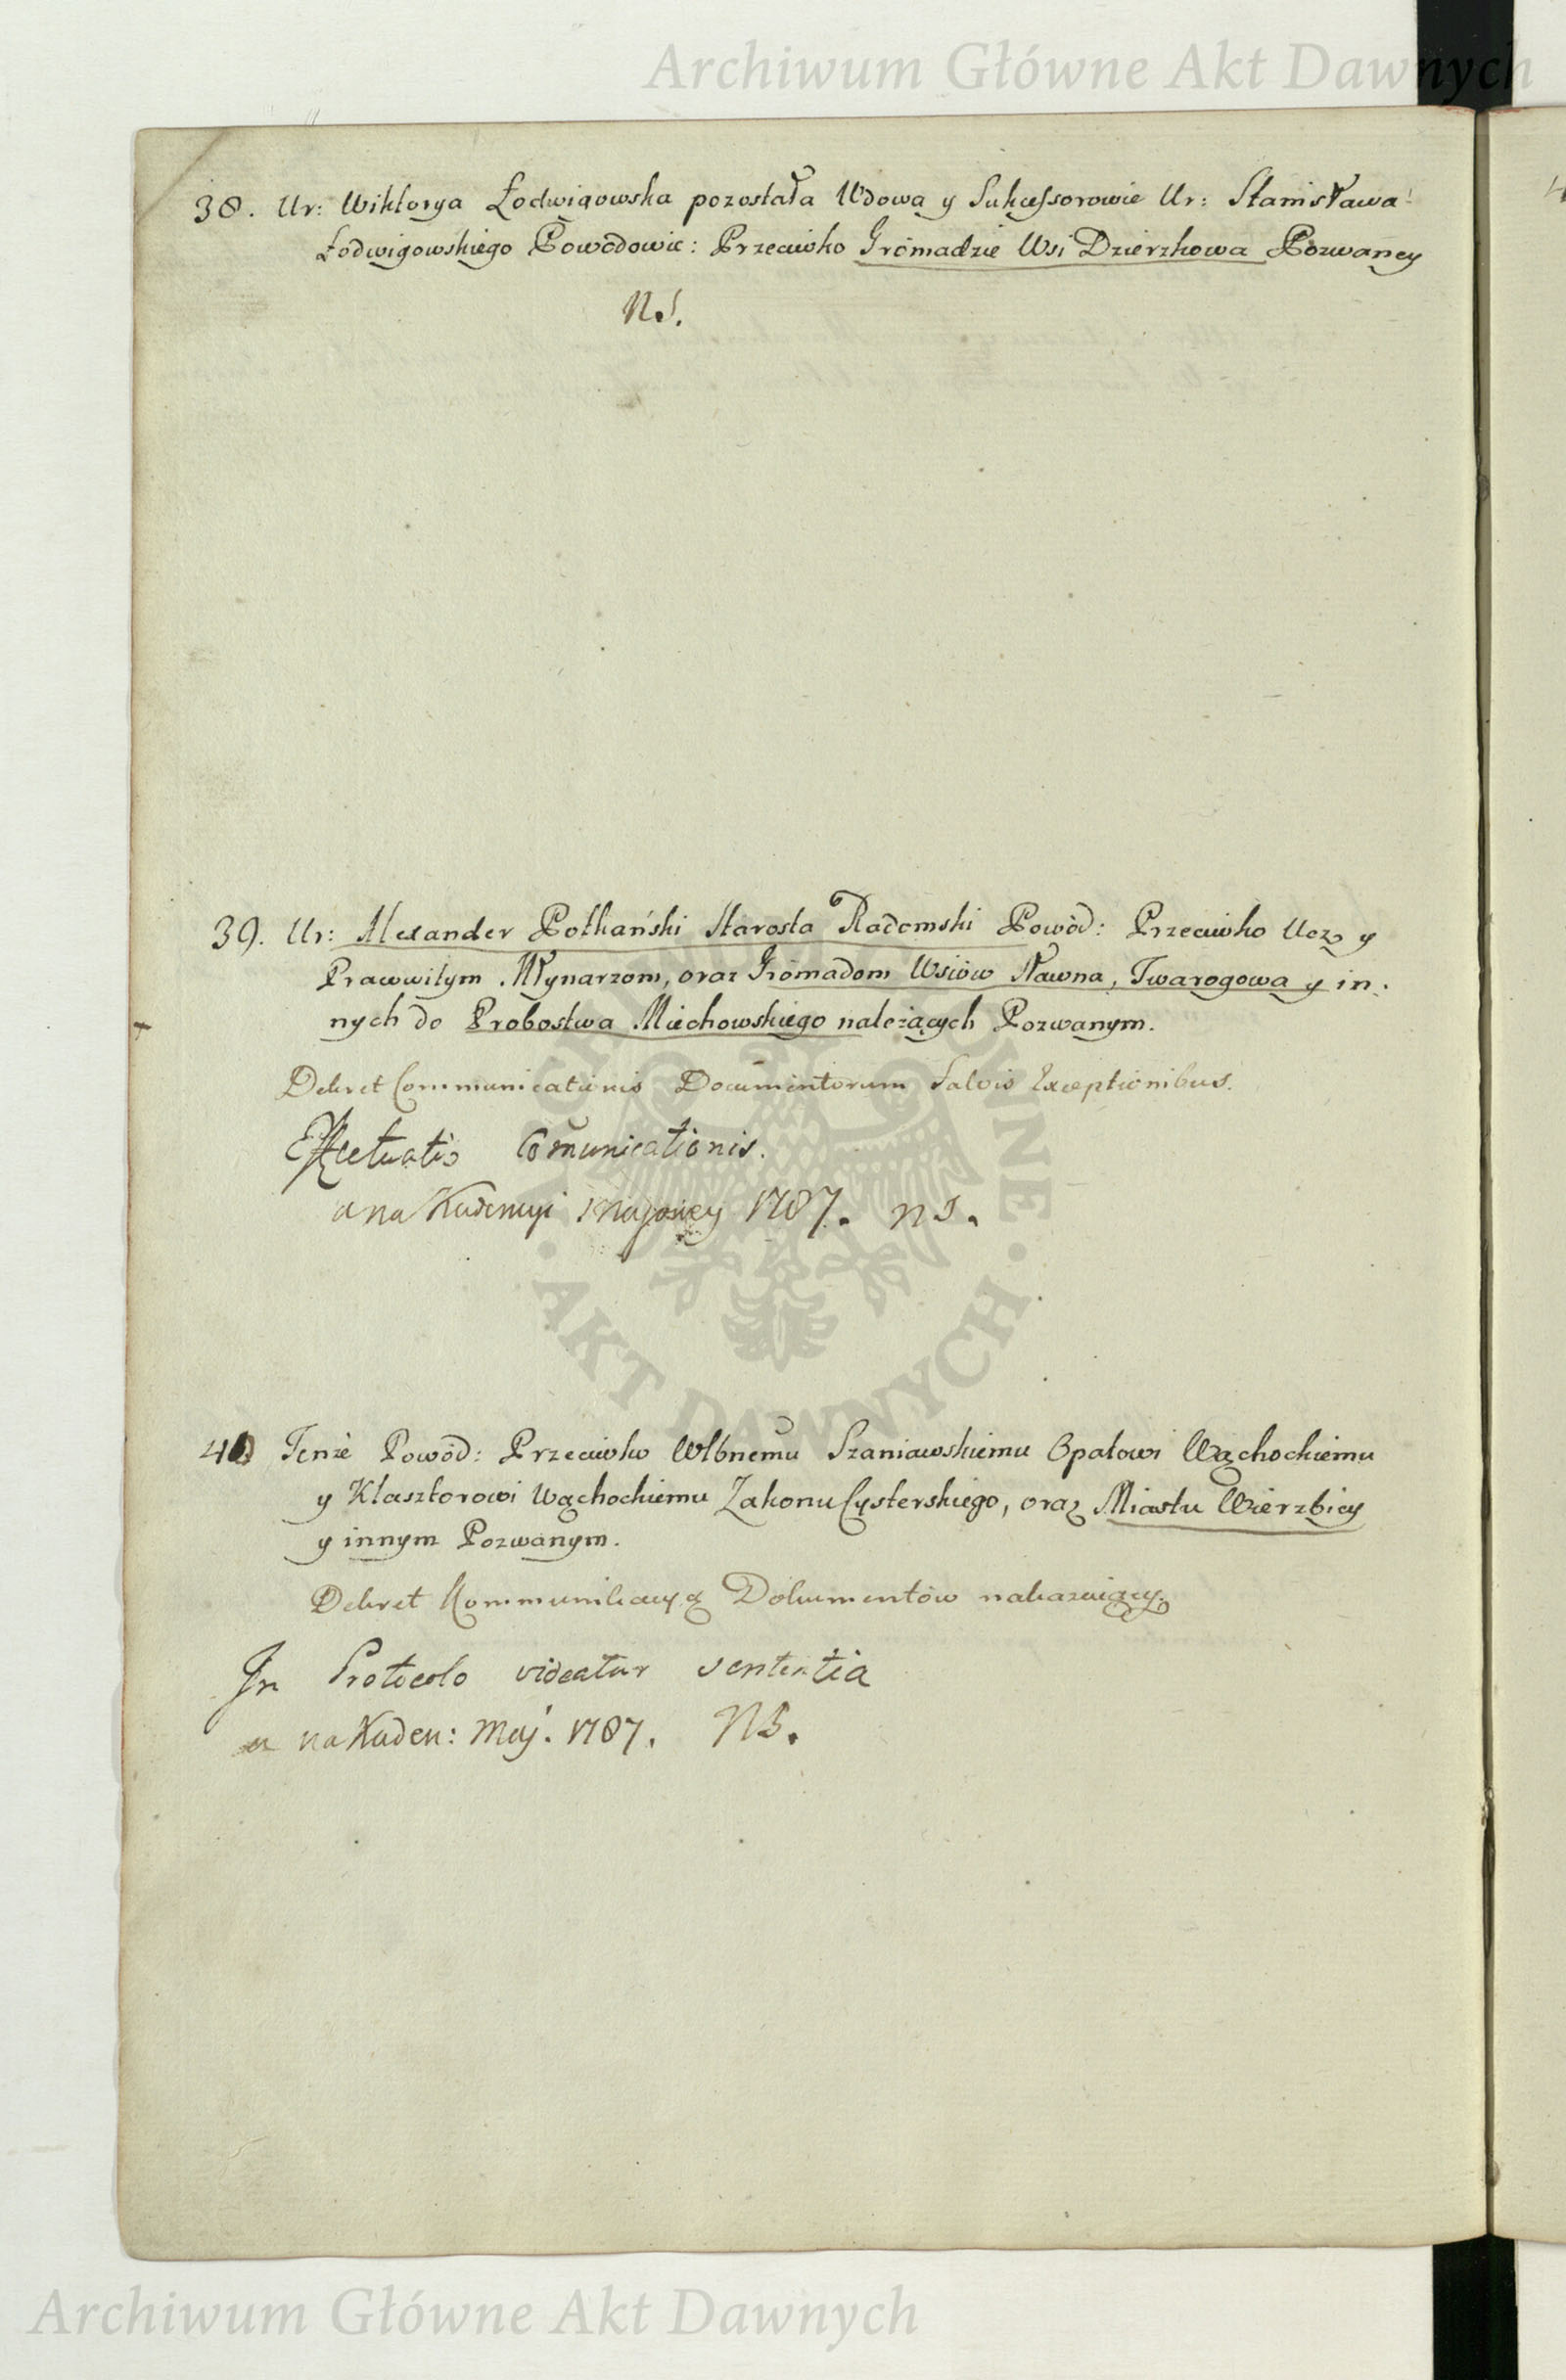 Archiwum Główne Akt Dawnych
38. Ur: Wiktorya Łodwigowska pozostała Wdowa y Sukcessorowie Ur: Stanisława
Łodwigowskiego Powodowie: Przeciwko Gromadzie Wsi Dzierzkowa Pozwaney
39. Ur: Alexander Potkański Starosta Radomski Powód: Przeciwko Ucz y
Pracowitym Młynarzom, oraz Gromadom Wsiów Sławna, Twarogowa y in:
nych do Probostwa Miechowskiego należących Pozwanym.
Dekret Communicationis Documentorum Salvis Exceptionibus.
Effectuatio Comunicationis.
a na Kadencyi Majowey 1787. NS.
40 Tenże Powód: Przeciwko Wlbnemu Szaniawskiemu Opatowi Wąchockiemu
y Klasztorowi Wąchockiemu Zakonu Cysterskiego, oraz Miastu Wierzbicy
y innym Pozwanym.
Dekret Kommunikacyą Dokumentów nakazuiący.
In Protocolo videatur sententia
a na Kaden: Maj. 1787. NS.
AKT DAWNYCH
Archiwum Główne Akt Dawnych